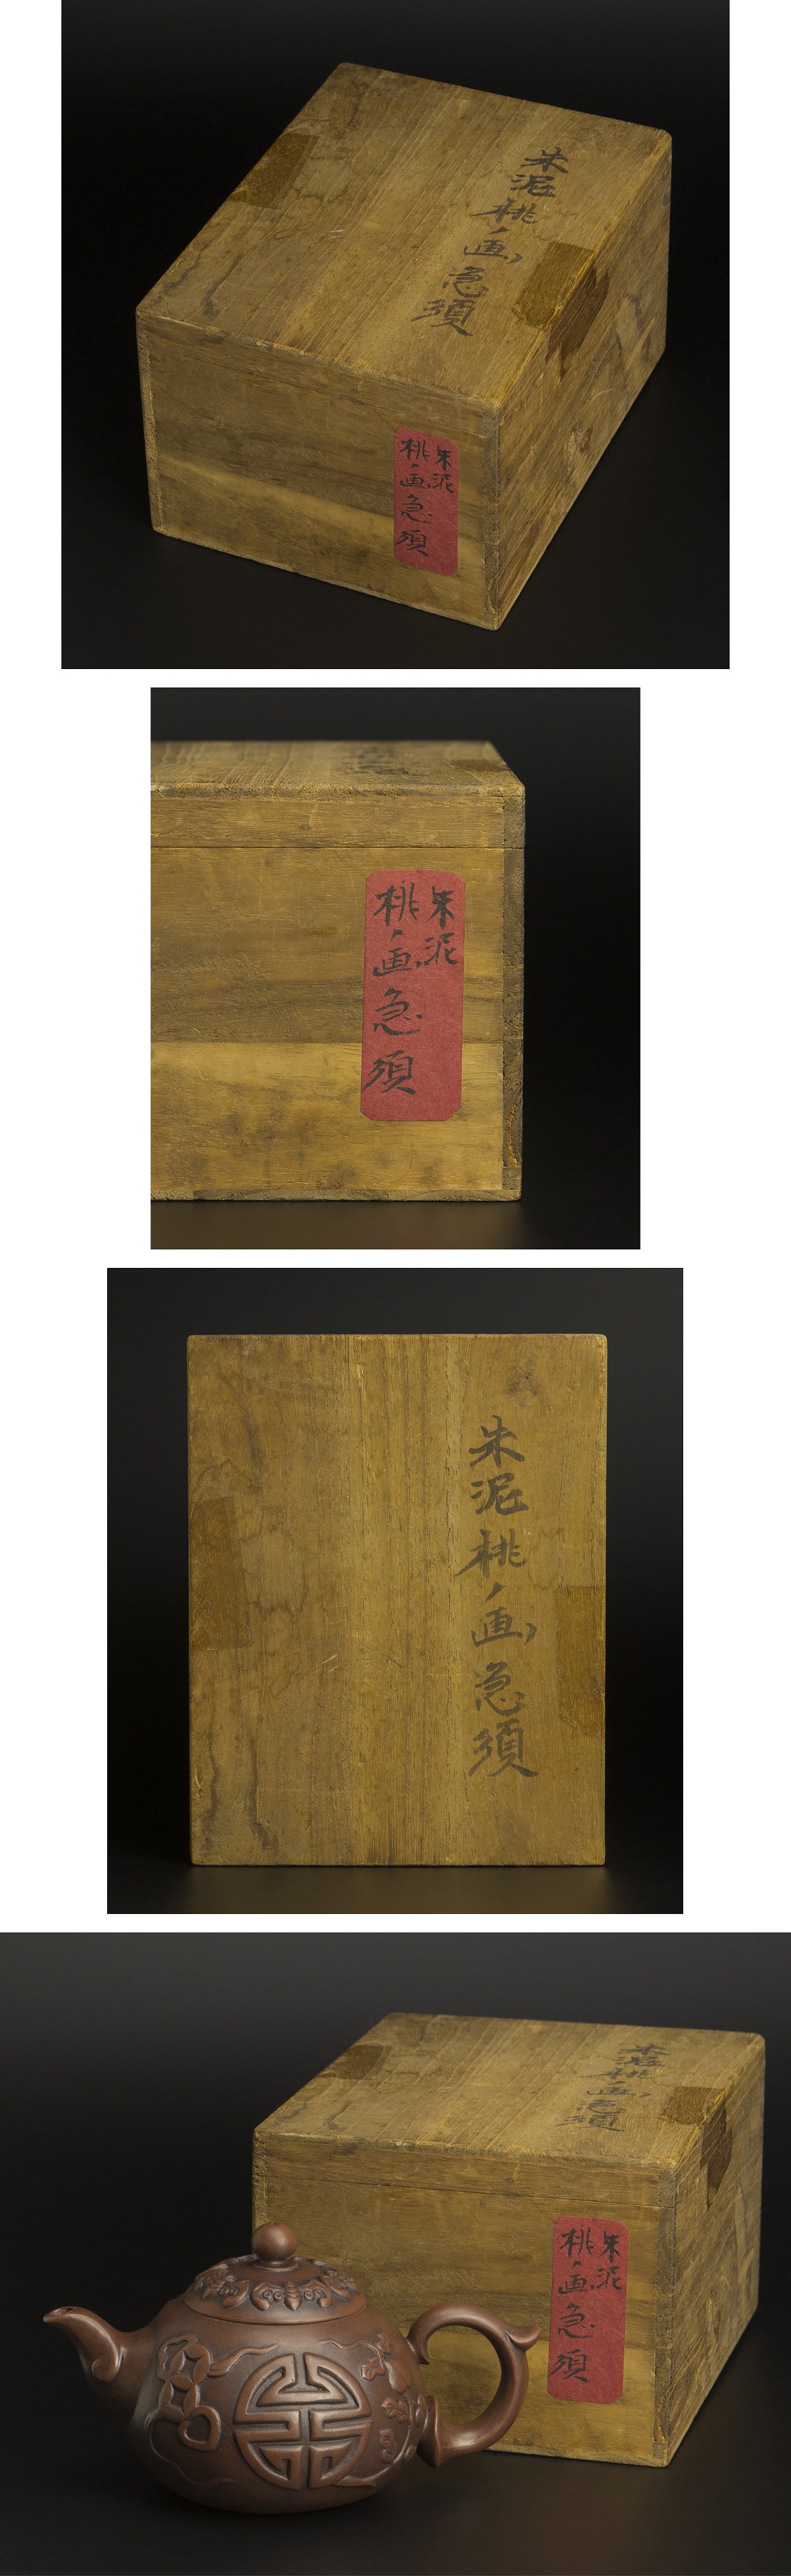 朱泥桃ノ画急須
朱泥
桃ノ画急須
朱泥
桃ノ画急須
朱泥桃ノ画急須
朱泥桃ノ画急須
朱泥
桃ノ画急須